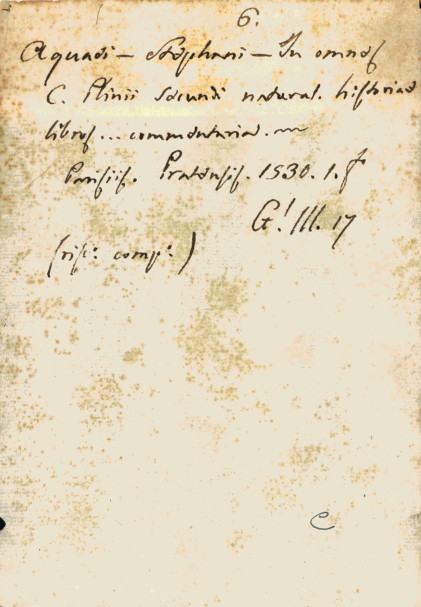 6.
Aquaei — Stephani — In omnes
C. Plinii Secundi natural. historiae
libros... commentaria.
Parisiis. Pratensis. 1530. 1. f
G! III. 17
(rist: comp:)
C